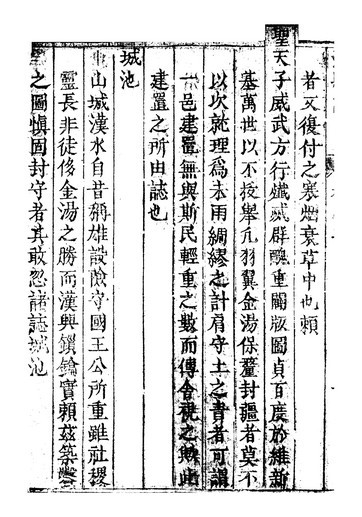 者又復付之寒煙衰草中也賴
聖天子威武方行殲厥群醜重闢版圖貞百度於維新
基萬世以不拔舉凡羽翼金湯保釐封疆者莫不
以次就理為未雨綢繆之計肩守土之責者可謂
一邑建置無與斯民輕重之數而傳會視之歟此
建置之所由誌也
城池
山城漢水自昔稱雄設險守國王公所重雖社稷
靈長非徒侈金湯之勝而漢興鎖鑰實賴茲築鑿
之圖慎固封守者其敢忽諸誌城池